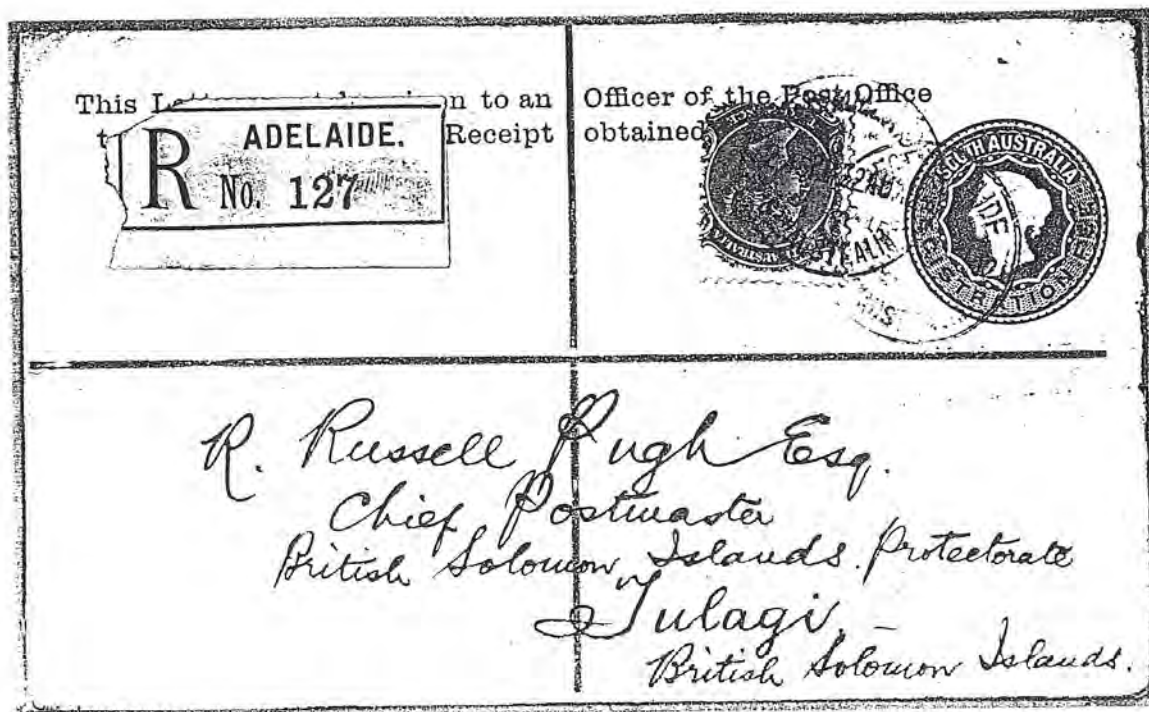 This n to an Officer of the Post Office
Receipt obtained
R ADELAIDE.
No. 127
SOUTH AUSTRALIA
R. Russell Pugh Esq.
Chief Postmaster
British Solomon Islands. Protectorate
Tulagi. –
British Solomon Islands.